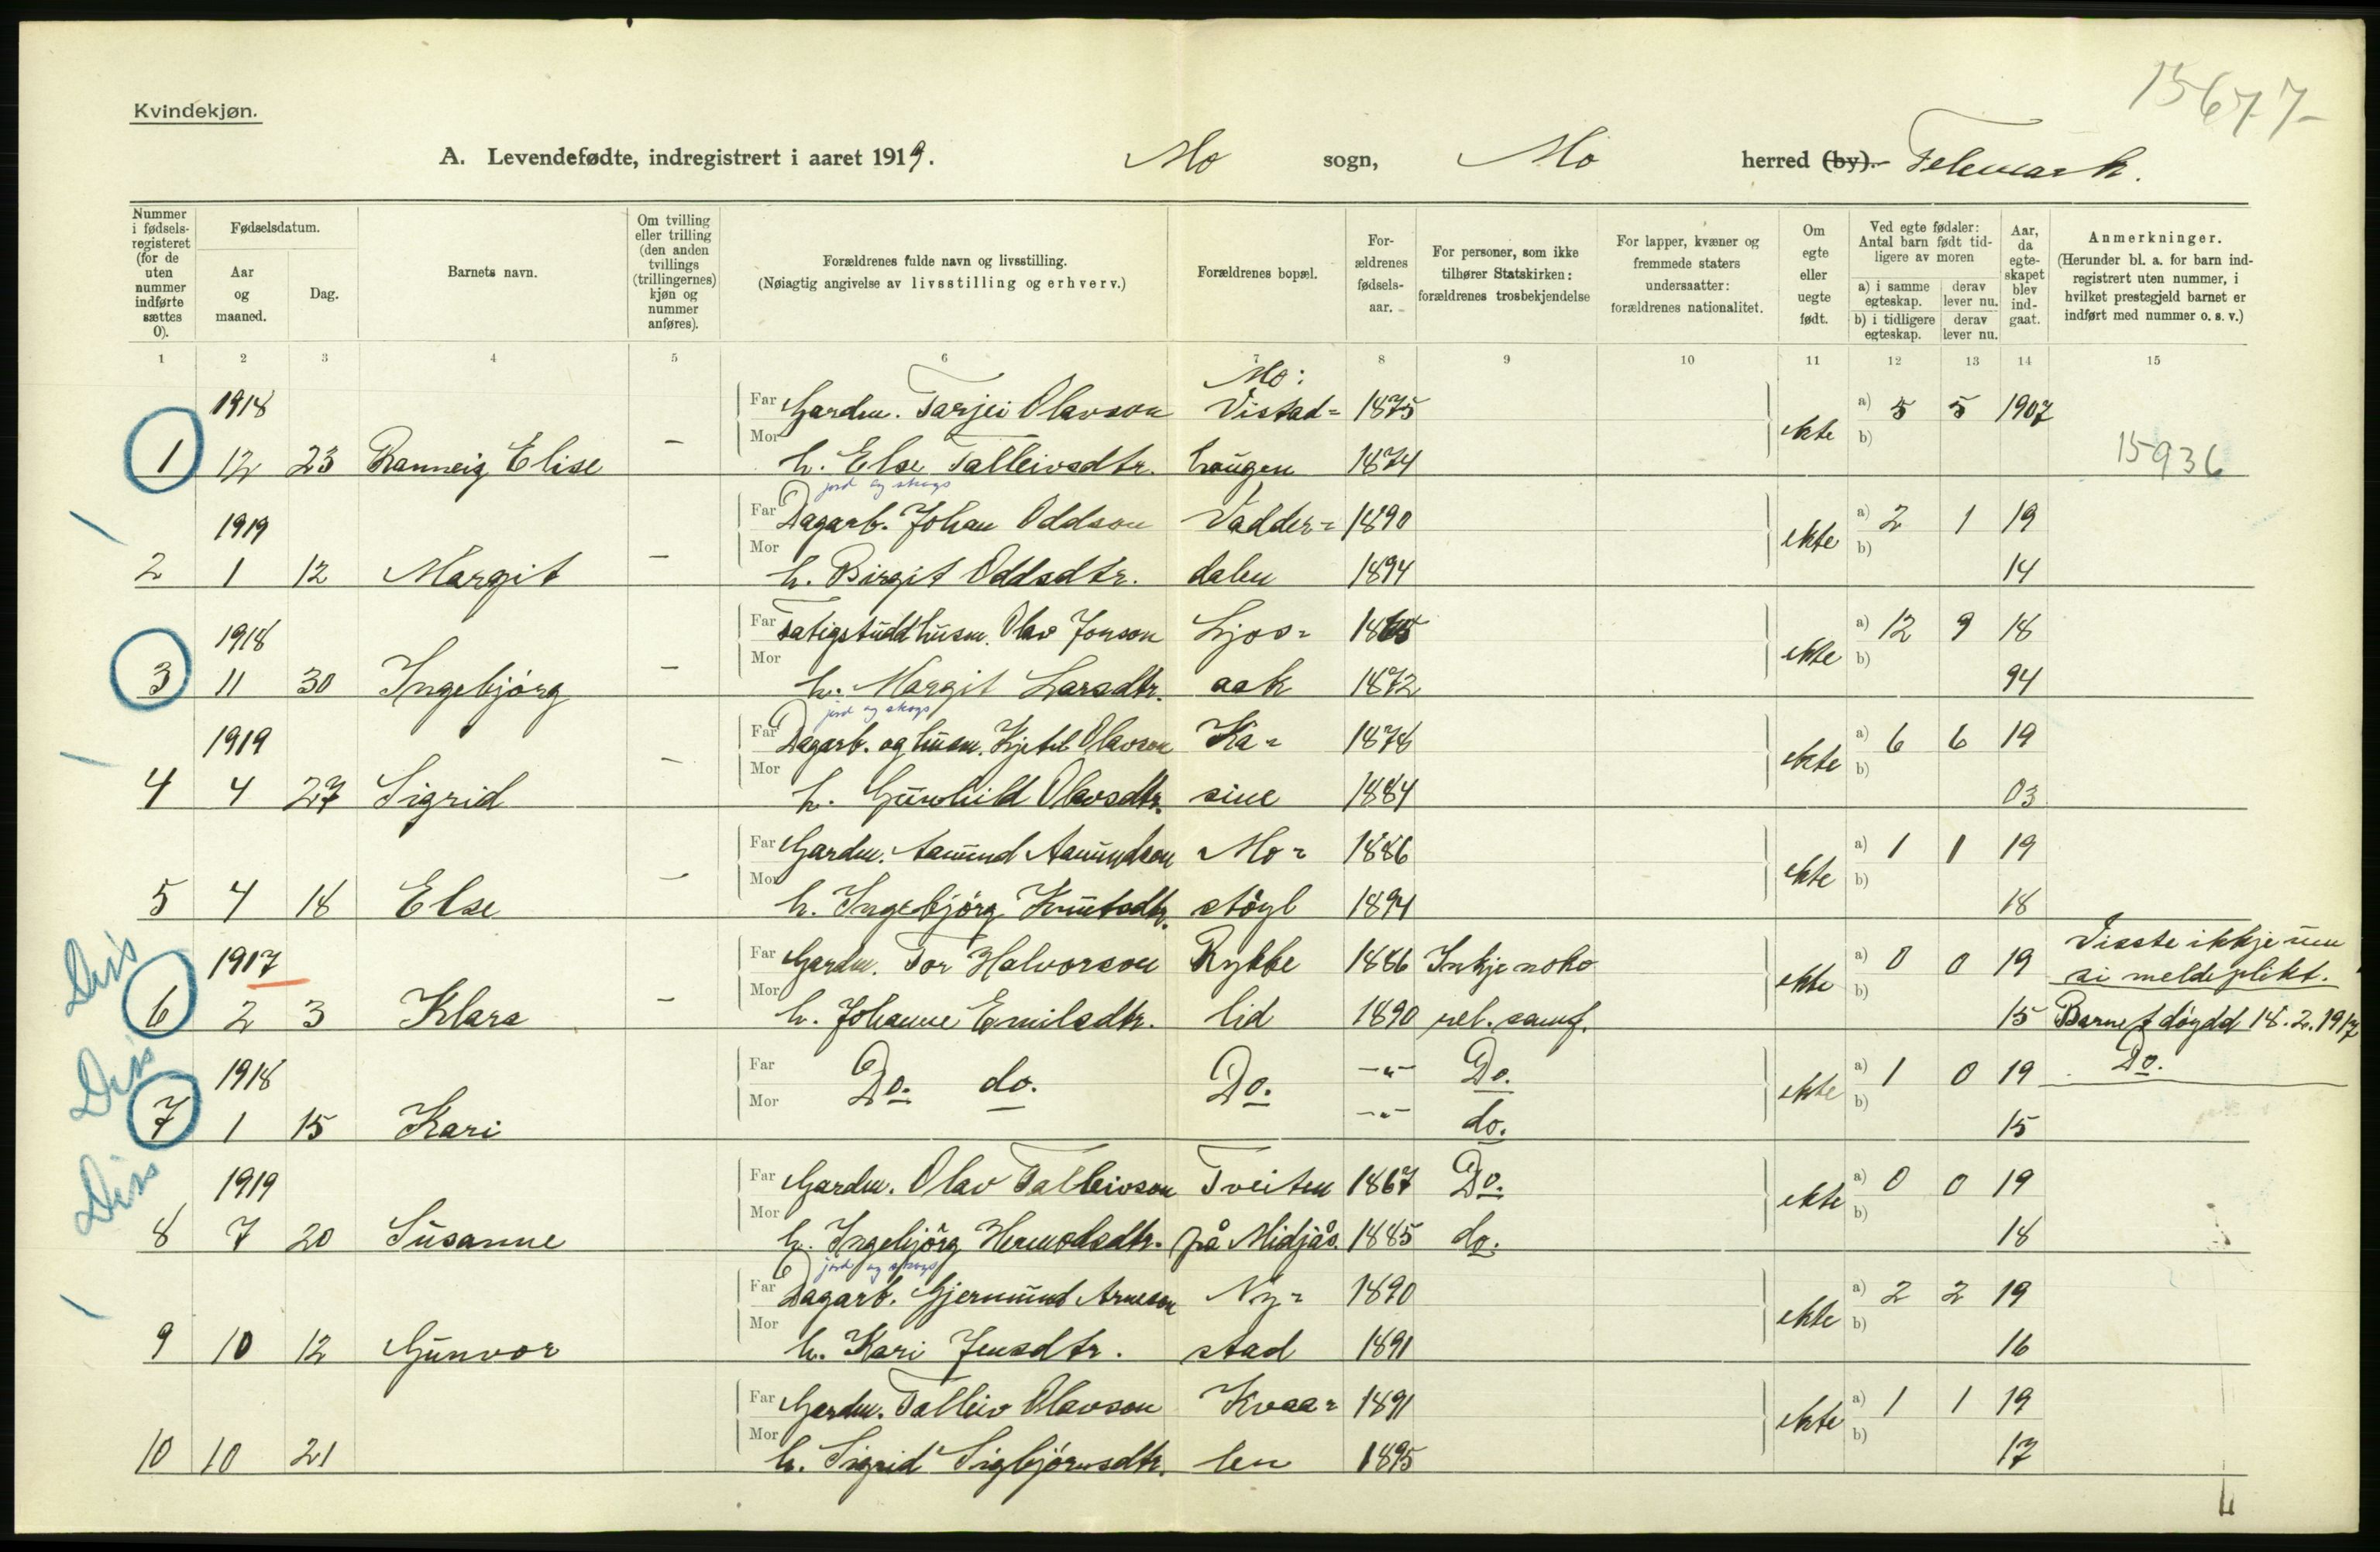 15677-
Kvindekjøn.
A. Levendefødte, indregistrert i aaret 1919. Mo sogn, Mo herred (by). Telemark.
Nummer i fødsels-registeret (for de uten nummer indførte sættes 0).
Fødselsdatum.
Aar og maaned.
Dag.
Barnets navn.
Om tvilling eller trilling (den anden tvillings (trillingernes) kjøn og nummer anføres).
Forældrenes fulde navn og livsstilling.
(Nøiagtig angivelse av livsstilling og erhverv.)
Forældrenes bopæl.
For-ældrenes fødsels-aar.
For personer, som ikke tilhører Statskirken: forældrenes trosbekjendelse
For lapper, kvæner og fremmede staters undersaatter: forældrenes nationalitet.
Om egte eller uegte født.
Ved egte fødsler: Antal barn født tid-ligere av moren
a) i samme egteskap. derav lever nu.
b) i tidligere egteskap. derav lever nu.
Aar, da egte-skapet blev ind-gaat.
Anmerkninger.
(Herunder bl. a. for barn ind-registrert uten nummer, i hvilket prestegjeld barnet er indført med nummer o. s. v.)
1 2 3 4 5 6 7 8 9 10 11 12 13 14 15
Mo:
1918 Far Gardm. Tarjei Olavson Vistad= 1875 ekte a) 5 5 1907
1 12 23 Ranneig Elise - Mor h. Else Talleivsdtr. haugen 1874 b) 15936
jord og skogs
1919 Far Dagarb. Johan Oddson Vadder= 1890 ekte a) 2 1 19
2 1 12 Margit - Mor h. Birgit Oddsdtr. dalen 1894 b) 14
1918 Far Fatigstudd husm. Olav Jonson Ljos= 1865 ekte a) 12 9 18
3 11 30 Ingebjörg - Mor h. Margit Larsdtr. aak 1872 b) 94
jord og skogs
1919 Far Dagarb. og husm. Kjetil Olavson Ka= 1878 ekte a) 6 6 19
4 4 27 Sigrid - Mor h. Gunhild Olavsdtr. sine 1884 b) 03
Far Gardm. Aamund Aamundson Mo= 1886 ekte a) 1 1 19
5 4 18 Else - Mor h. Ingebjörg Knutsdtr. støyl 1894 b) 18
Dis 1917 Far Gardm. Tor Halvorson Rykke 1886 Inkje noko ekte a) 0 0 19 Visste ikkje um si meldeplikt.
6 2 3 Klara - Mor h. Johanne Emilsdtr. lid 1890 rel. samf. b) 15 Barnet döydd 18.2.1917
Dis 1918 Far Do. do. Do. -"- Do. ekte a) 1 0 19 Do.
7 1 15 Kari Mor -"- do. b) 15
Dis 1919 Far Gardm. Olav Talleivson Tveiten 1867 Do. ekte a) 0 0 19
8 7 20 Susanne Mor h. Ingebjörg Hermodsdtr. på Midjås. 1885 do. b) 18
jord og skogs
Far Dagarb. Gjermund Arneson Ny= 1890 ekte a) 2 2 19
9 10 12 Gunvor Mor h. Kari Jensdtr. stad 1891 b) 16
Far Gardm. Talleiv Olavson Kvaa= 1891 ekte a) 1 1 19
10 10 21 Mor h. Sigrid Sigbjörnsdtr. len 1895 b) 17